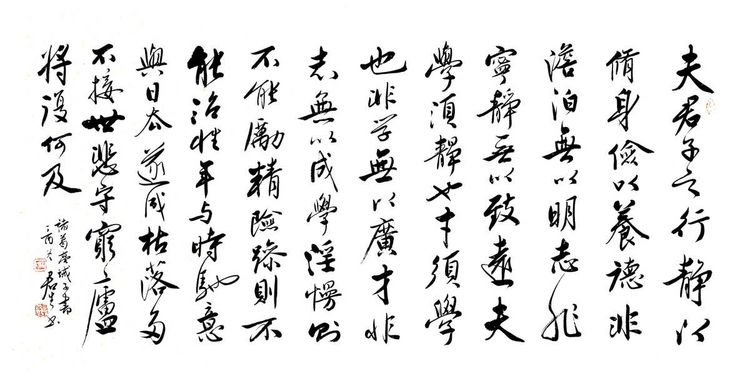 夫君子之行静以
脩身儉以養德非
澹泊無以明志非
寧靜无以致遠夫
學須靜也才須學
也非学無以廣才非
志無以成學淫慢則
不能勵精險躁則不
能治性年与時馳意
與日去遂成枯落多
不接世悲守窮廬
将復何及
諸葛亮诫子書